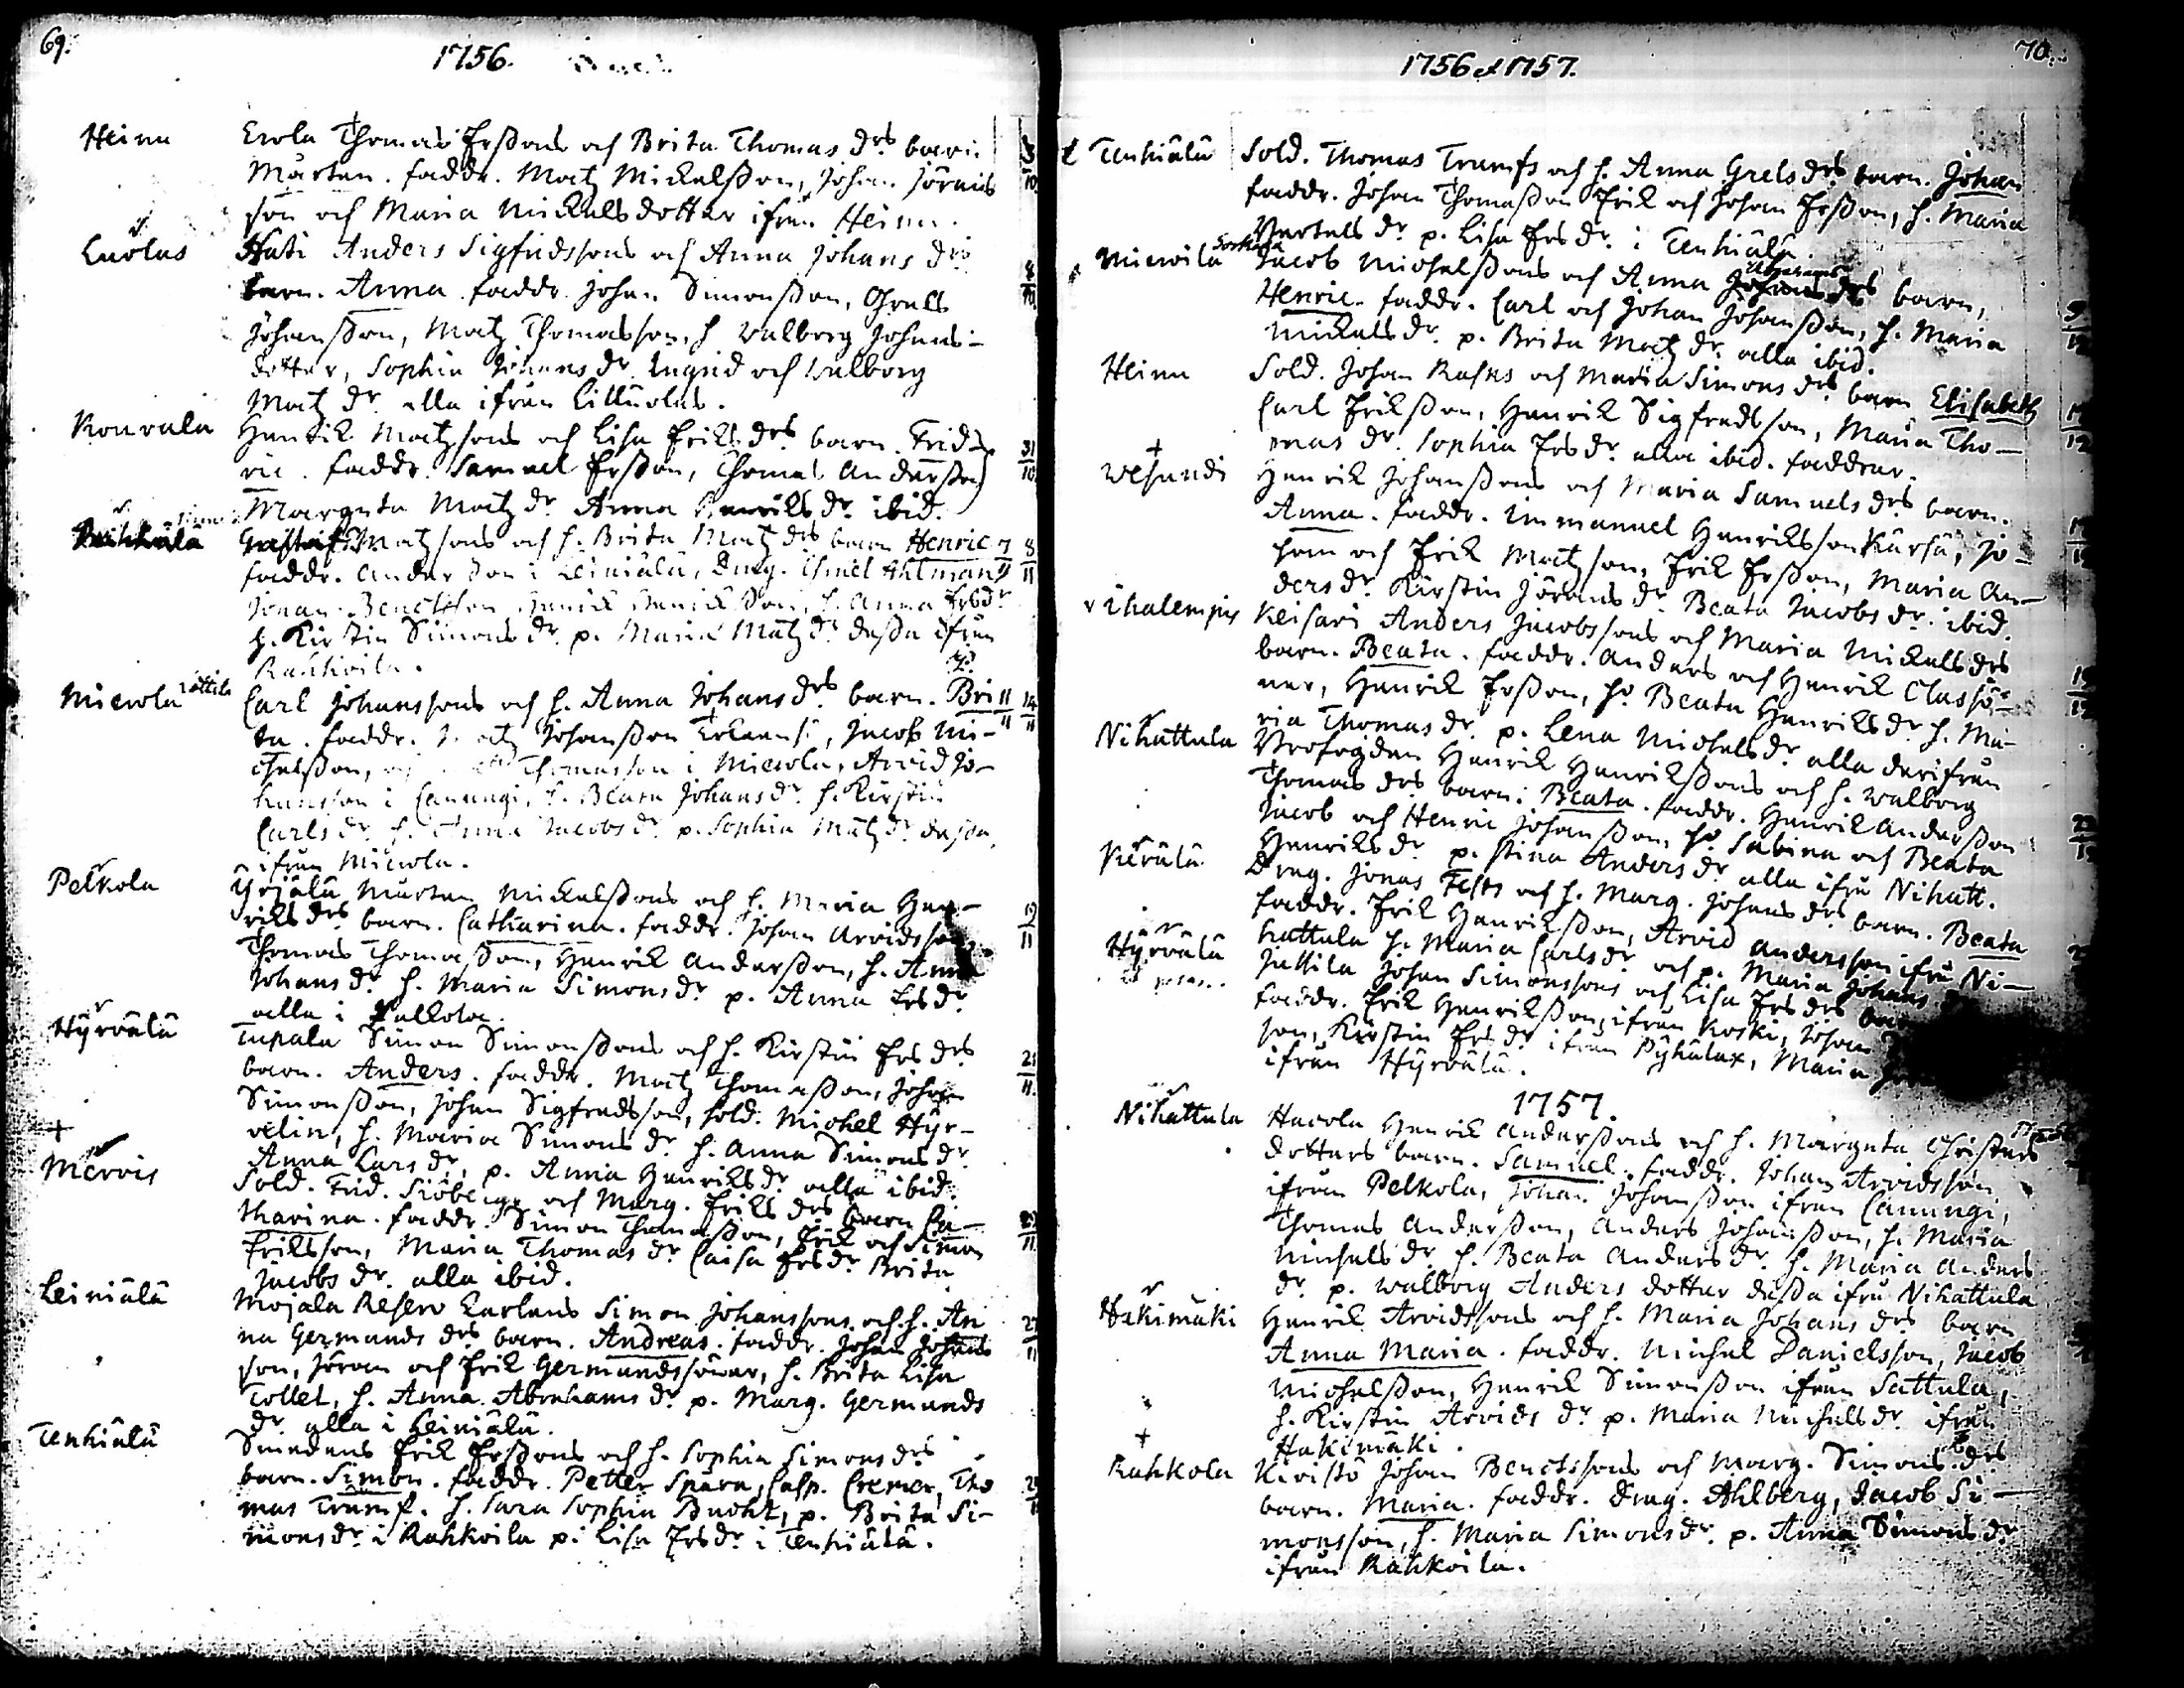 69.
1756.
Heinu Erola Thomas Ersßons och Brita Thomas drs barn.
Mårten. faddr. Matz Mickelsßon, Johan Jörans
son och Maria Mickels dotter ifrån Heinu.
Luolas Hati Anders Sigfridssons och Anna Johans drs
barn. Anna. faddr. Johan Simonsßon, Grels
Johansßon, Matz Thomasson, h Walborg Johans-
dotter, Sophia Johans dr. Ingrid och Walborg
Matz dr alla ifrån Lilluolas.
Rouvala Henrik Matzsons och Lisa Eriks drs barn. Frid-
ric. faddr. Samuel Ersßon, Thomas Andersßon 31/10
Margeta Matz dr. Anna Henriks dr. ibid.
Gustaf Matzsons och h. Brita Matz drs barn Henric 7/11 8/11
faddr. Andersßon i Leiniälä, Drag. Ahlman
Johan Benctsson Henrik Henriksßon, h. Anna Ersdr
h. Kirstin Simons dr. p. Maria Matz dr. dessa ifrån
Rahkoila.
Mierola Carl Johanssons och h. Anna Johans drs barn. Bri 11/11 14/11
ta. faddr. Matz Johansßon, Jacob Mi-
chelsßon, Thomasson i Mierola, Arvid Jo-
hansson i Canungi, h. Beata Johans dr. h. Kirstin
Carls dr. h. Anna Jacobs dr. p. Sophia Matz dr. dessa
ifrån Mierola.
Pelkola Yrjälä Mårten Mickelsßons och h. Maria Hen-
riks drs barn. Catharina. faddr. Johan Arvidsson 19/11
Thomas Thomaßon, Henrik Andersßon, h. Anna
Johans dr. h. Maria Simons dr p. Anna Ers dr.
alla i Pelkola.
Hyrvälä Tupala Simon Simonsßons och h. Kirstin Ers drs
barn. Anders. faddr. Matz Thomaßon, Johan 21/11.
Simonsßon, Johan Sigfredsson, sold. Michel Hyr-
velin, h. Maria Simons dr. h. Anna Simons dr
Anna Lars dr, p. Anna Henriks dr alla ibid.
Mervis Sold. Frid. Siöbergs och Marg. Eriks drs barn Ca-
tharina. faddr. Simon Thomaßon, Erik och Simon
Eriksson, Maria Thomas dr Caisa Ers dr Brita
Jacobs dr. alla ibid.
Leiniälä Mojala Reserv Carlens Simon Johanssons och h. An
na Germunds drs barn. Andreas. faddr. Johan Johans
son, Jöran och Erik Germundssöner, h. Brita Lisa
Tollet, h. Anna Abrahams dr p. Marg. Germunds
dr. alla i Leiniälä.
Tenhiälä Smedens Erik Ersßons och h. Sophia Simons drs
barn. Simon. faddr. Petter Spåra, Casp. Cremer, Tho
mas Trumf. h. Sara Sophia Bucht, p. Brita Si-
mons dr. i Rahkoila p. Lisa Ers dr. i Tenhiälä.
70.
1756 et 1757.
Tenhiälä Sold. Thomas Trumfs och h. Anna Grels drs barn. Johan
faddr. Johan Thomaßon Erik och Johan Ersßon, h. Maria
Bertels dr. p. Lisa Ers dr. i Tenhiälä.
Mieroila Jacob Michelsßons och Anna Abrahams drs barn,
Henric. faddr. Carl och Johan Johansßon, h. Maria
Mickels dr. p. Brita Matz dr. alla ibid.
Heinu Sold. Johan Rafns och Maria Simons drs barn Elisabeth
Carl Eriksßon, Henrik Sigfredsson, Maria Tho-
mas dr. Sophia Ers dr. alla ibid. faddrar.
Wesundi Henrik Johansßons och Maria Samuels drs barn.
Anna. faddr. Immanuel Henriksson, Jo-
han och Erik Matzson, Erik Ersßon, Maria An-
ders dr. Kirstin Jörans dr. Beata Jacobs dr. ibid.
Ihalempis Keisari Anders Jacobssons och Maria Mickels drs
barn. Beata. faddr. Anders och Henrik Classö-
ner, Henrik Ersßon, h. Beata Henriks dr h. Ma-
ria Thomas dr. p. Lena Michels dr. alla derifrån
Nihattula Profogden Henrik Henriksßons och h. Walborg
Thomas drs barn. Beata. faddr. Henrik Andersßon
Jacob och Henric Johansßon, h. Sabina och Beata
Henriks dr. p. Stina Anders dr alla ifrå Nihatt.
Kerälä Drag. Jonas Fests och h. Marg. Johans drs barn. Beata
faddr. Erik Henriksßon, Arvid Andersson ifrå Ni-
hattula h. Maria Carls dr. och p. Maria Johans
Hyrvälä Jussila Johan Simonssons och Lisa Ers drs
faddr. Erik Henriksßon, ifrån Koski, Johan
son, Kirstin Ers dr. ifrån Pyhälax, Maria
ifrån Hyrvälä.
1757.
Nihattula Havola Henrik Andersßons och h. Margeta Christers
dotters barn. Samuel. faddr. Johan Arvidsson
ifrån Pelkola, Johan Johansßon ifrån Canungi,
Thomas Andersßon, Anders Johansßon, h. Maria
Michels dr. h. Beata Anders dr. h. Maria Anders
dr. p. Walborg Anders dotter dessa ifrå Nihattula
Hakimäki Henrik Arvidssons och h. Maria Johans drs barn
Anna Maria. faddr. Michel Danielsson, Jacob
Michelsßon, Henrik Simonsßon ifrån Sattula,
h. Kirstin Arvids dr p. Maria Michels dr ifrån
Hakimäki.
Rahkola Kivistö Johan Benctssons och Marg. Simons drs
barn. Maria. faddr. Drag. Ahlberg, Jacob Si-
monsson, h. Maria Simons dr. p. Anna Simons dr
ifrån Rahkoila.